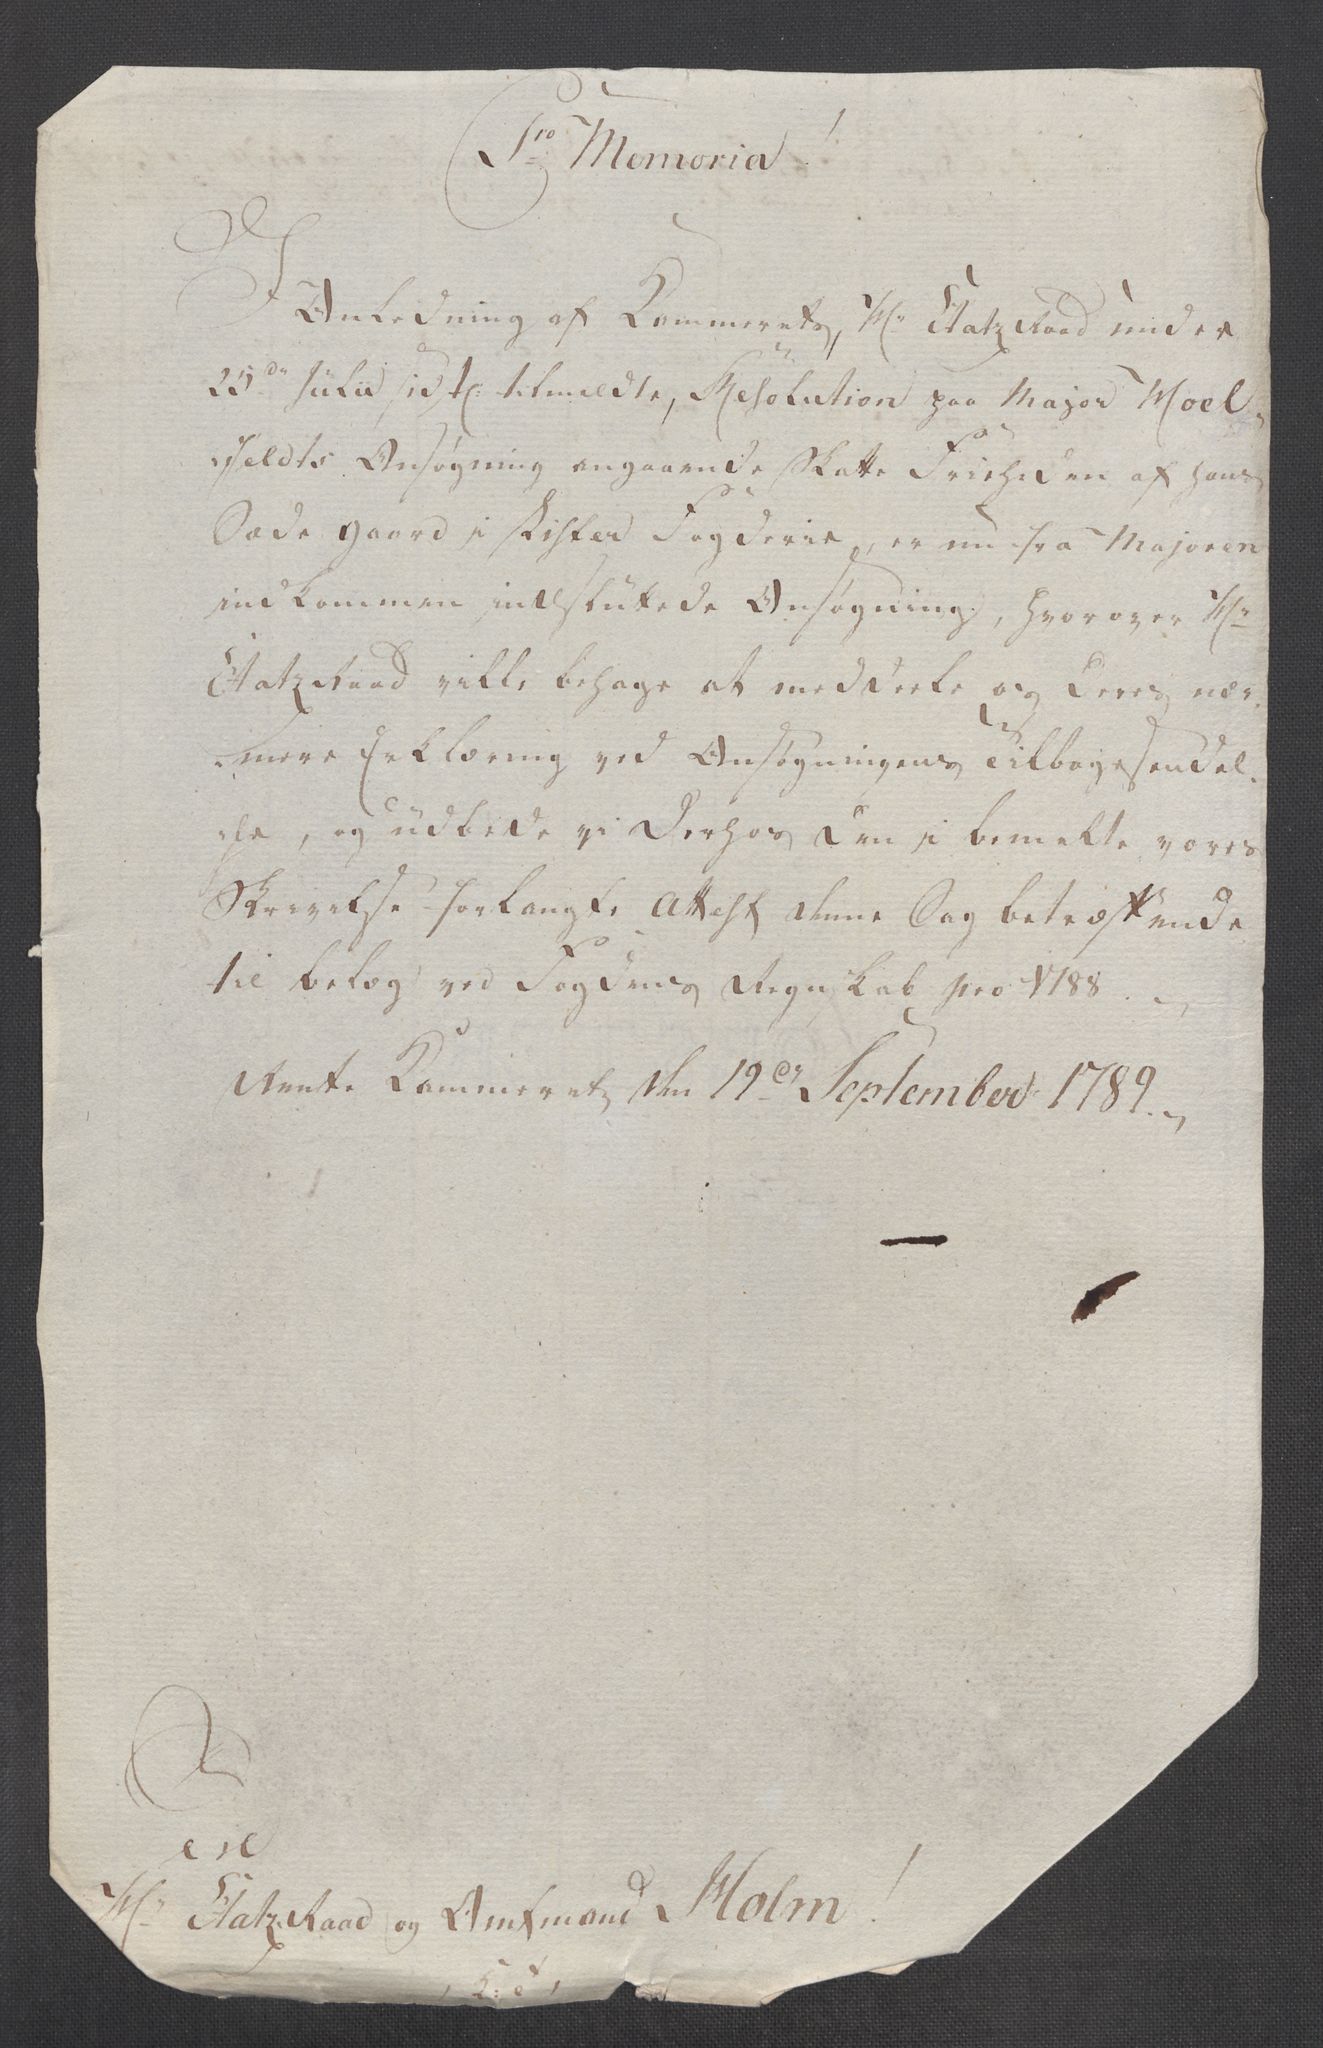 Pro Memoria!
I Anledning af Kammerets, Hr. Etatz Raad under
25de Julii sidstl. tilmeldte, Resolution paa Major Moel-
feldts Ansøgning angaaende Skatte Friheden af hans
Sæde gaard i Lister Fogderie, er nu fra Majoren
indkommen indsluttede Ansøgning, hvorover Hr.
Etatz Raad ville behage at meddeele os deres nær-
mere Erklæring ved Ansøgningens Tilbagesendel-
se, og udbede vi derhos den i bemelte vores
Skrivelse forlangte Attest denne Sag betræffende
til belæg ved Fogdens Regnskab pro 1788.
Rente Kammeret den 19de September 1789.
Til
Hr. Etatz Raad og Amtmand Holm!